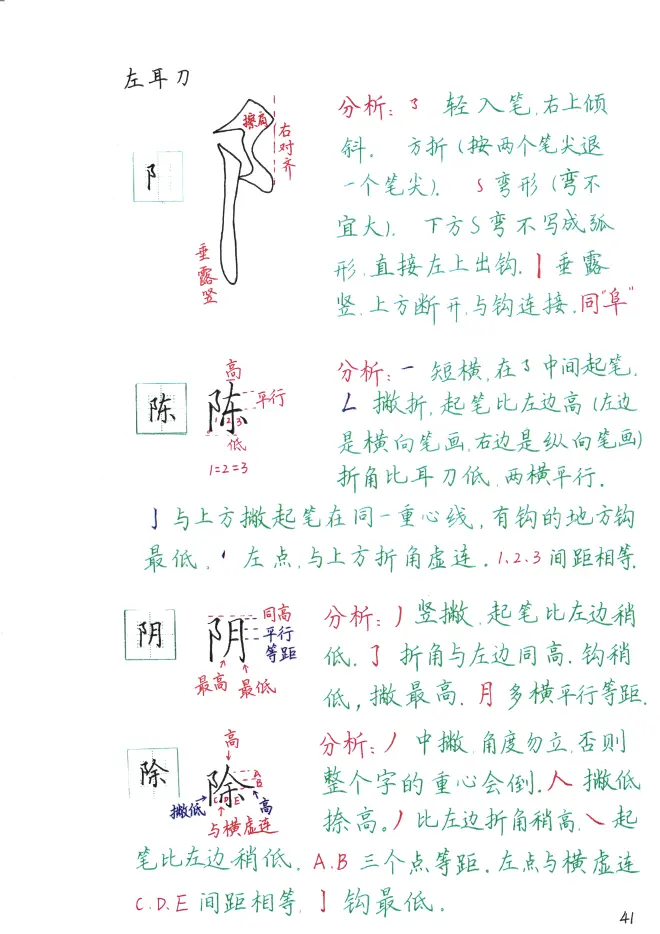 左耳刀
擦肩
右对齐
垂露竖
阝
分析: 了 轻入笔,右上倾
斜. 方折(按两个笔尖退
一个笔尖). S弯形(弯不
宜大). 下方S弯不写成弧
形,直接左上出钩.丨垂露
竖,上方断开,与钩连接.同"阜"
陈
高
陈
平行
1 2 3
低
1=2=3
分析:一 短横,在了中间起笔.
ㄥ 撇折,起笔比左边高(左边
是横向笔画,右边是纵向笔画)
折角比耳刀低,两横平行.
亅与上方撇起笔在同一重心线,有钩的地方钩
最低. 左点,与上方折角虚连.1.2.3间距相等.
阴
阴
同高
平行
等距
最高 最低
分析:丿竖撇,起笔比左边稍
低.㇆ 折角与左边同高.钩稍
低,撇最高.月多横平行等距.
除
高
除
A
B
C D E
撇低
高
与横虚连
分析:丿 中撇,角度勿立,否则
整个字的重心会倒.人 撇低
捺高。丿比左边折角稍高,㇏起
笔比左边稍低.A.B三个点等距.左点与横虚连
C.D.E 间距相等,亅钩最低.
41